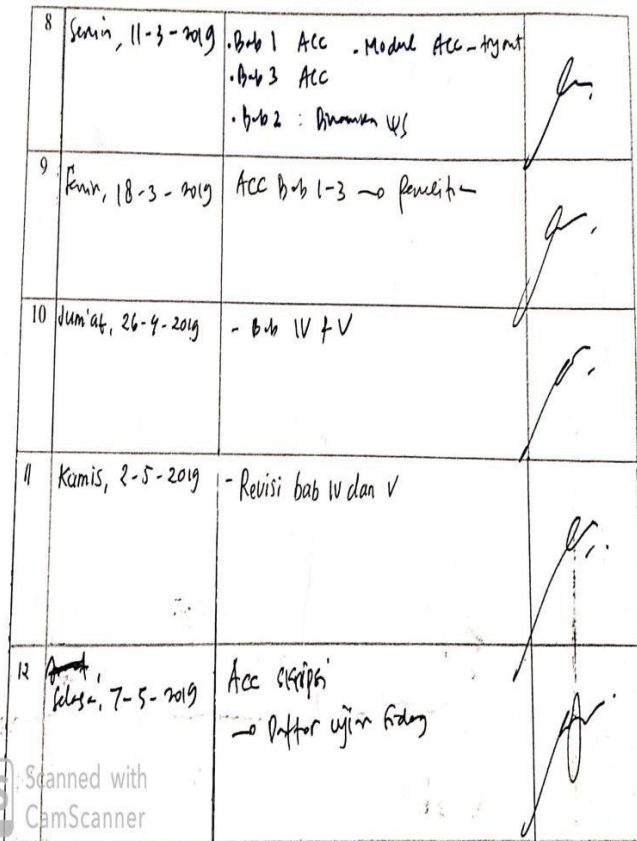 8 Senin, 11-3-2019 . Bab 1 ACC . Modul ACC - tryout
. Bab 3 ACC
. Bab 2 :
9
Senin, 18-3-2019 ACC Bab 1-3 → Penelitian
10 Jum'at, 26-4-2019 - Bab IV + V
11 Kamis, 2-5-2019 - Revisi bab IV dan V
12
Selasa, 7-5-2019 Acc skripsi
→ Daftar ujian sidang
Scanned with
CamScanner